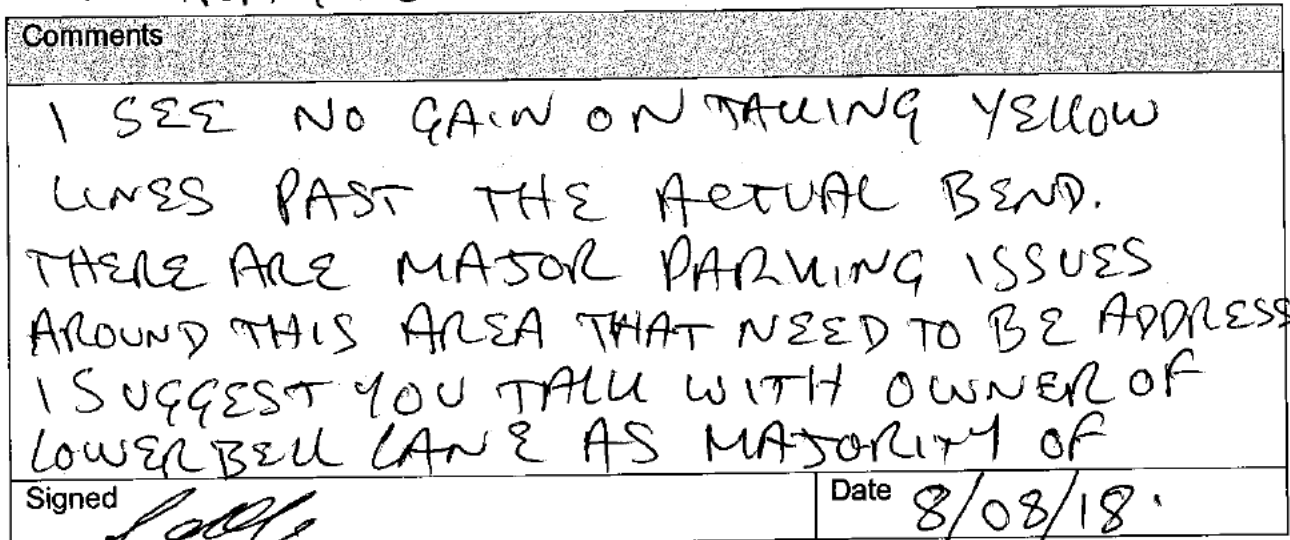 Comments
I SEE NO GAIN ON TAKING YELLOW
LINES PAST THE ACTUAL BEND.
THERE ARE MAJOR PARKING ISSUES
AROUND THIS AREA THAT NEED TO BE ADDRESS
I SUGGEST YOU TALK WITH OWNER OF
LOWER BELL LANE AS MAJORITY OF
Signed
Date 8/08/18.